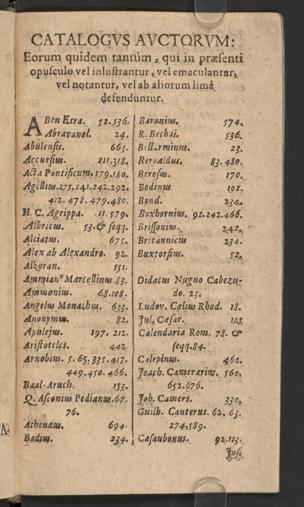 CATALOGVS AVCTORVM:
Eorum quidem tantùm, qui in præsenti
opusculo vel inlustrantur, vel emaculantur,
vel notantur, vel ab aliorum limâ
defenduntur.
ABen Esra. 52.536.
Abravanel. 24.
Abulensis. 663.
Accursius. 211.318.
Acta Pontificum. 179.180.
Agellius. 275.141.242.292.
412.478.479.480.
H. C. Agrippa. 11.579.
Albricus. 53. & seqq.
Alciatus. 675.
Alex ab Alexandro. 92.
Alkoran. 151.
Ammian⁹ Marcellinus 83.
Ammonius. 68.108.
Angelus Monachus. 633.
Anonymus. 82.
Apulejus. 197. 212.
Aristoteles. 442
Arnobius. 5.65.335.417.
449.450.466.
Baal-Aruch. 153.
Q. Asconius Pedianus. 67.
76.
Athenæus. 694.
Badius. 234.
Baronius. 574.
R. Bechai. 536.
Bellarminus. 23.
Beroaldus. 83.480.
Berosus. 170.
Bodinus 102.
Bond. 234.
Boxhornius. 92.142.466.
Brissonius. 242.
Britannicus 234.
Buxtorfius. 52.
Didacus Nugno Cabezu-
do. 23.
Ludov. Cælius Rhod. 18.
Jul. Cæsar. 105
Calendaria Rom. 78. &
seqq. 84.
Calepinus. 462.
Joach. Camerarius. 560.
652.676.
Joh. Camers. 330.
Guilh. Canterus. 62. 63.
274.589.
Casaubonus. 92.113.